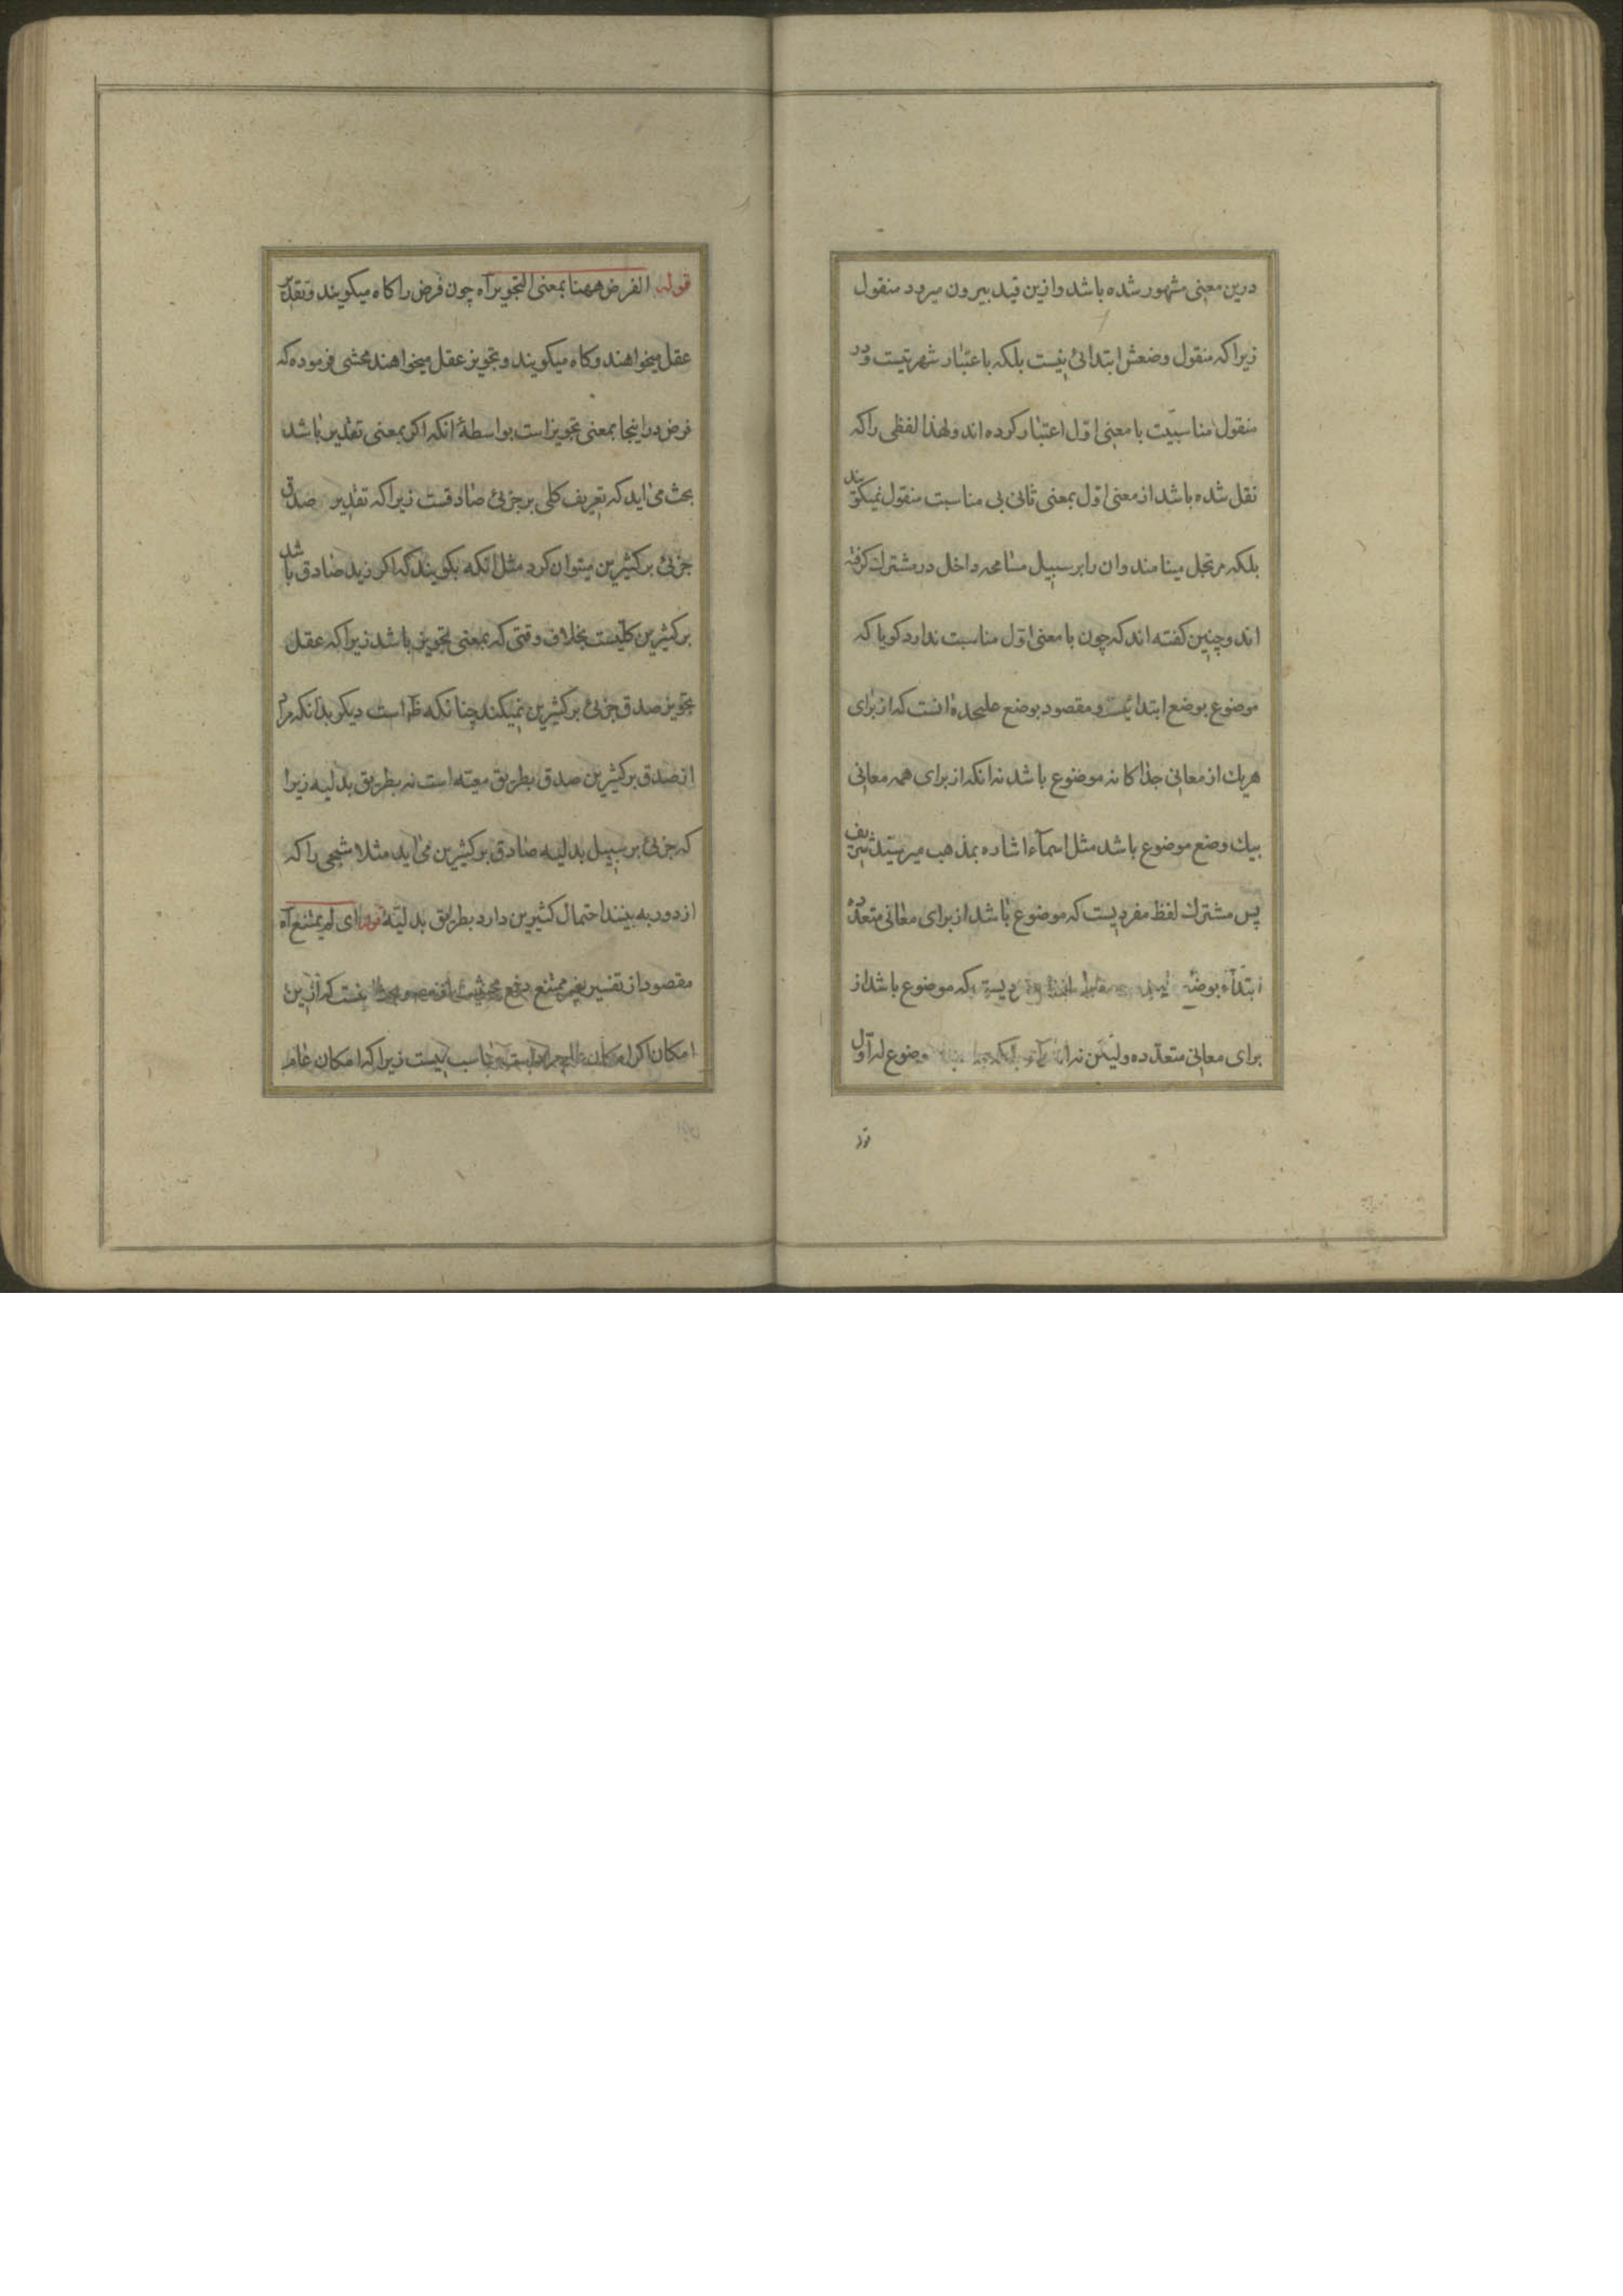 درین معنی مشهور شده باشد و ازین قید بیرون میرود منقول
زیرا که منقول وضعش ابتدائی نیست بلکه باعتبار شهرتیست و در
منقول مناسبت با معنی اول اعتبار کرده اند و لهذا لفظی را که
نقل شده باشد از معنی اول بمعنی ثانی بی مناسبت منقول نمیکویند
بلکه مرتجل مینامند و ان را بر سبیل مسامحه داخل در مشترک کرفته
اند و چنین کفته اند که چون با معنی اول مناسبت ندارد کویا که
موضوع بوضع ابتدائیست و مقصود بوضع علیحده انست که از برای
هریک از معانی جداکانه موضوع باشد نه انکه از برای همه معانی
بیک وضع موضوع باشد مثل اسماء اشاره بمذهب میر سید شریف
پس مشترک لفظ مفردیست که موضوع باشد از برای معانی متعدده
ابتداء بوضع که موضوع باشد از
برای معانی متعدده ولیکن نه ابتداء بلکه موضوع له اول
قوله
قوله الفرض ههنا بمعنی التجویز آه چون فرض را کاه میکویند و تقدیر
عقل میخواهند و کاه میکویند و تجویز عقل میخواهند محشی فرموده که
فرض در اینجا بمعنی تجویز است بواسطهٔ انکه اکر بمعنی تقدیر باشد
بحث می اید که تعریف کلی بر جزئی صادقست زیرا که تقدیر صدق
جزئی بر کثیرین میتوان کرد مثل انکه بکویند که اکر زید صادق باشد
بر کثیرین کلیست بخلاف وقتی که بمعنی تجویز باشد زیرا که عقل
تجویز صدق جزئی بر کثیرین نمیکند چنانکه ظ است دیکر بدانکه مراد
از صدق بر کثیرین صدق بطریق معیته است نه بطریق بدلیه زیرا
که جزئی بر سبیل بدلیه صادق بر کثیرین می اید مثلا شبحی را که
از دور به بینند احتمال کثیرین دارد بطریق بدلیته قوله ای لم یمتنع آه
مقصود از تفسیر بغیر ممتنع دفع که ازین
امکان اکر امکان مناسب نیست زیرا که امکان عام